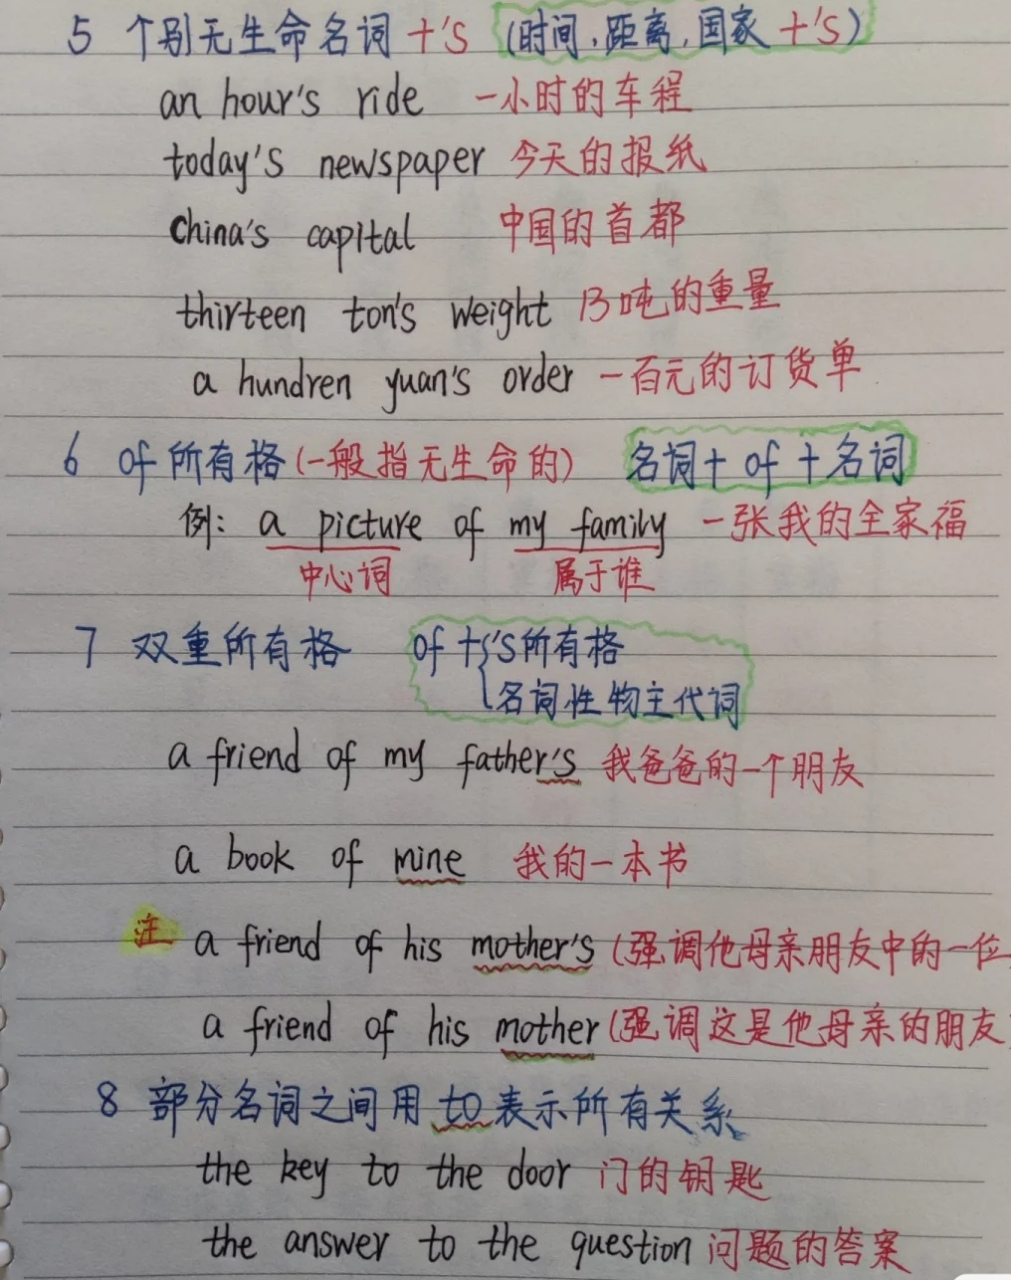 5 个别无生命名词 +'s (时间,距离,国家 +'s)
an hour's ride 一小时的车程
today's newspaper 今天的报纸
China's capital 中国的首都
thirteen ton's weight 13吨的重量
a hundren yuan's order 一百元的订货单
6 of 所有格(一般指无生命的) 名词 + of + 名词
例: a picture of my family 一张我的全家福
中心词 属于谁
7 双重所有格 of + { 's所有格
名词性物主代词
a friend of my father's 我爸爸的一个朋友
a book of mine 我的一本书
注 a friend of his mother's (强调他母亲朋友中的一位
a friend of his mother (强调这是他母亲的朋友
8 部分名词之间用 to 表示所有关系
the key to the door 门的钥匙
the answer to the question 问题的答案